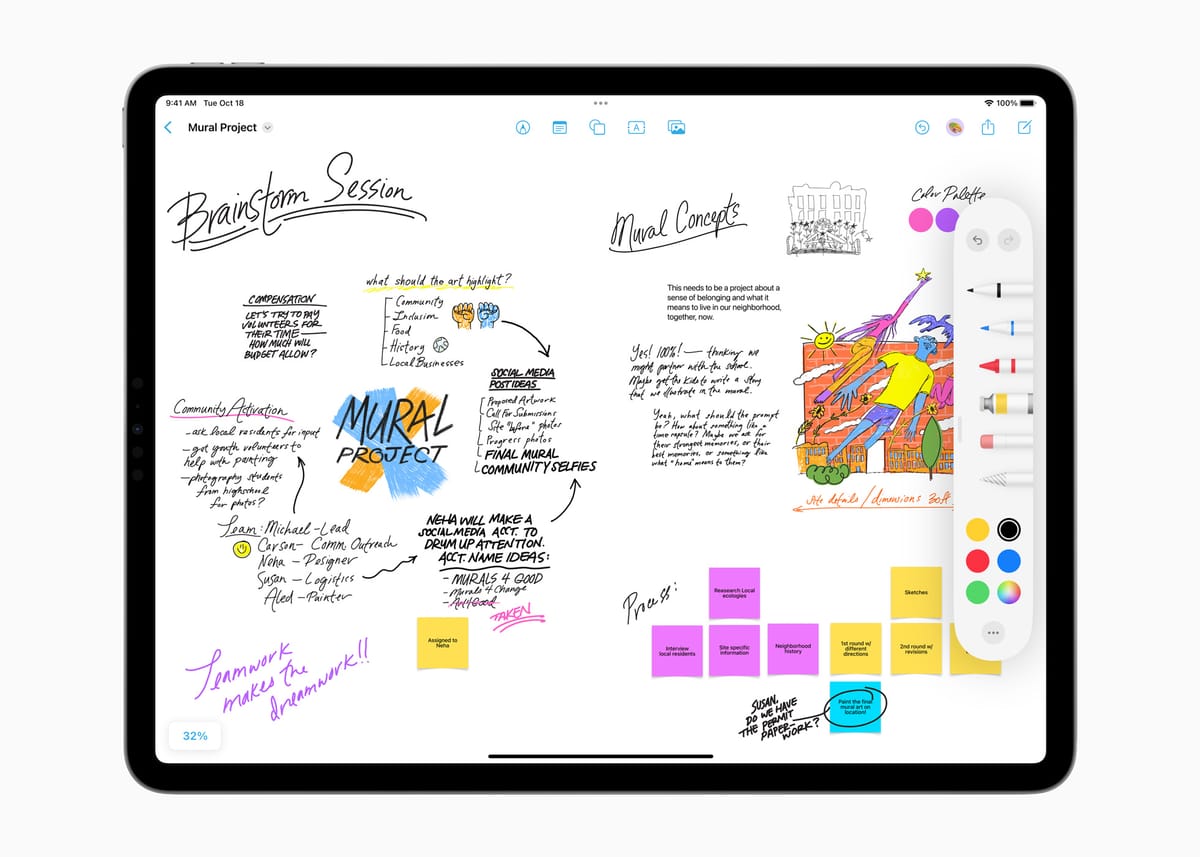 9:41 AM Tue Oct 18
100%
Mural Project
A
Brainstorm Session
what should the art highlight?
Community
Inclusion
Food
History
Local Businesses
COMPENSATION
LET'S TRY TO PAY
VOLUNTEERS FOR
THEIR TIME —
HOW MUCH WILL
BUDGET ALLOW?
SOCIAL MEDIA
POST IDEAS
Proposed Artwork
Call For Submissions
Site "before" photos
Progress photos
FINAL MURAL
COMMUNITY SELFIES
MURAL
PROJECT
Community Activation
- ask local residents for input
- get youth volunteers to
help with painting
- photography students
from highschool
for photos?
Team: Michael - Lead
Carson - Comm. Outreach
Neha - Designer
Susan - Logistics
Aled - Painter
NEHA WILL MAKE A
SOCIAL MEDIA ACCT. TO
DRUM UP ATTENTION.
ACCT. NAME IDEAS:
- MURALS 4 GOOD
- Murals 4 Change
- Art 4 Good
TAKEN
Assigned to
Neha
Teamwork
makes the
dreamwork!!
32%
Mural Concepts
Color Palette
This needs to be a project about a
sense of belonging and what it
means to live in our neighborhood,
together, now.
Yes! 100%! — thinking we
might partner with the school.
Maybe get the kids to write a story
that we illustrate in the mural.
Yeah, what should the prompt
be? How about something like a
time capsule? Maybe we ask for
their strongest memories, or their
best memories, or something like
what "home" means to them?
Site details/dimensions 30ft
Process:
Reasearch Local
ecologies
Sketches
Interview
local residents
Site specific
information
Neighborhood
history
1st round w/
different
directions
2nd round w/
revisions
Paint the final
mural art on
location!
SUSAN,
DO WE HAVE
THE PERMIT
PAPER-
WORK?